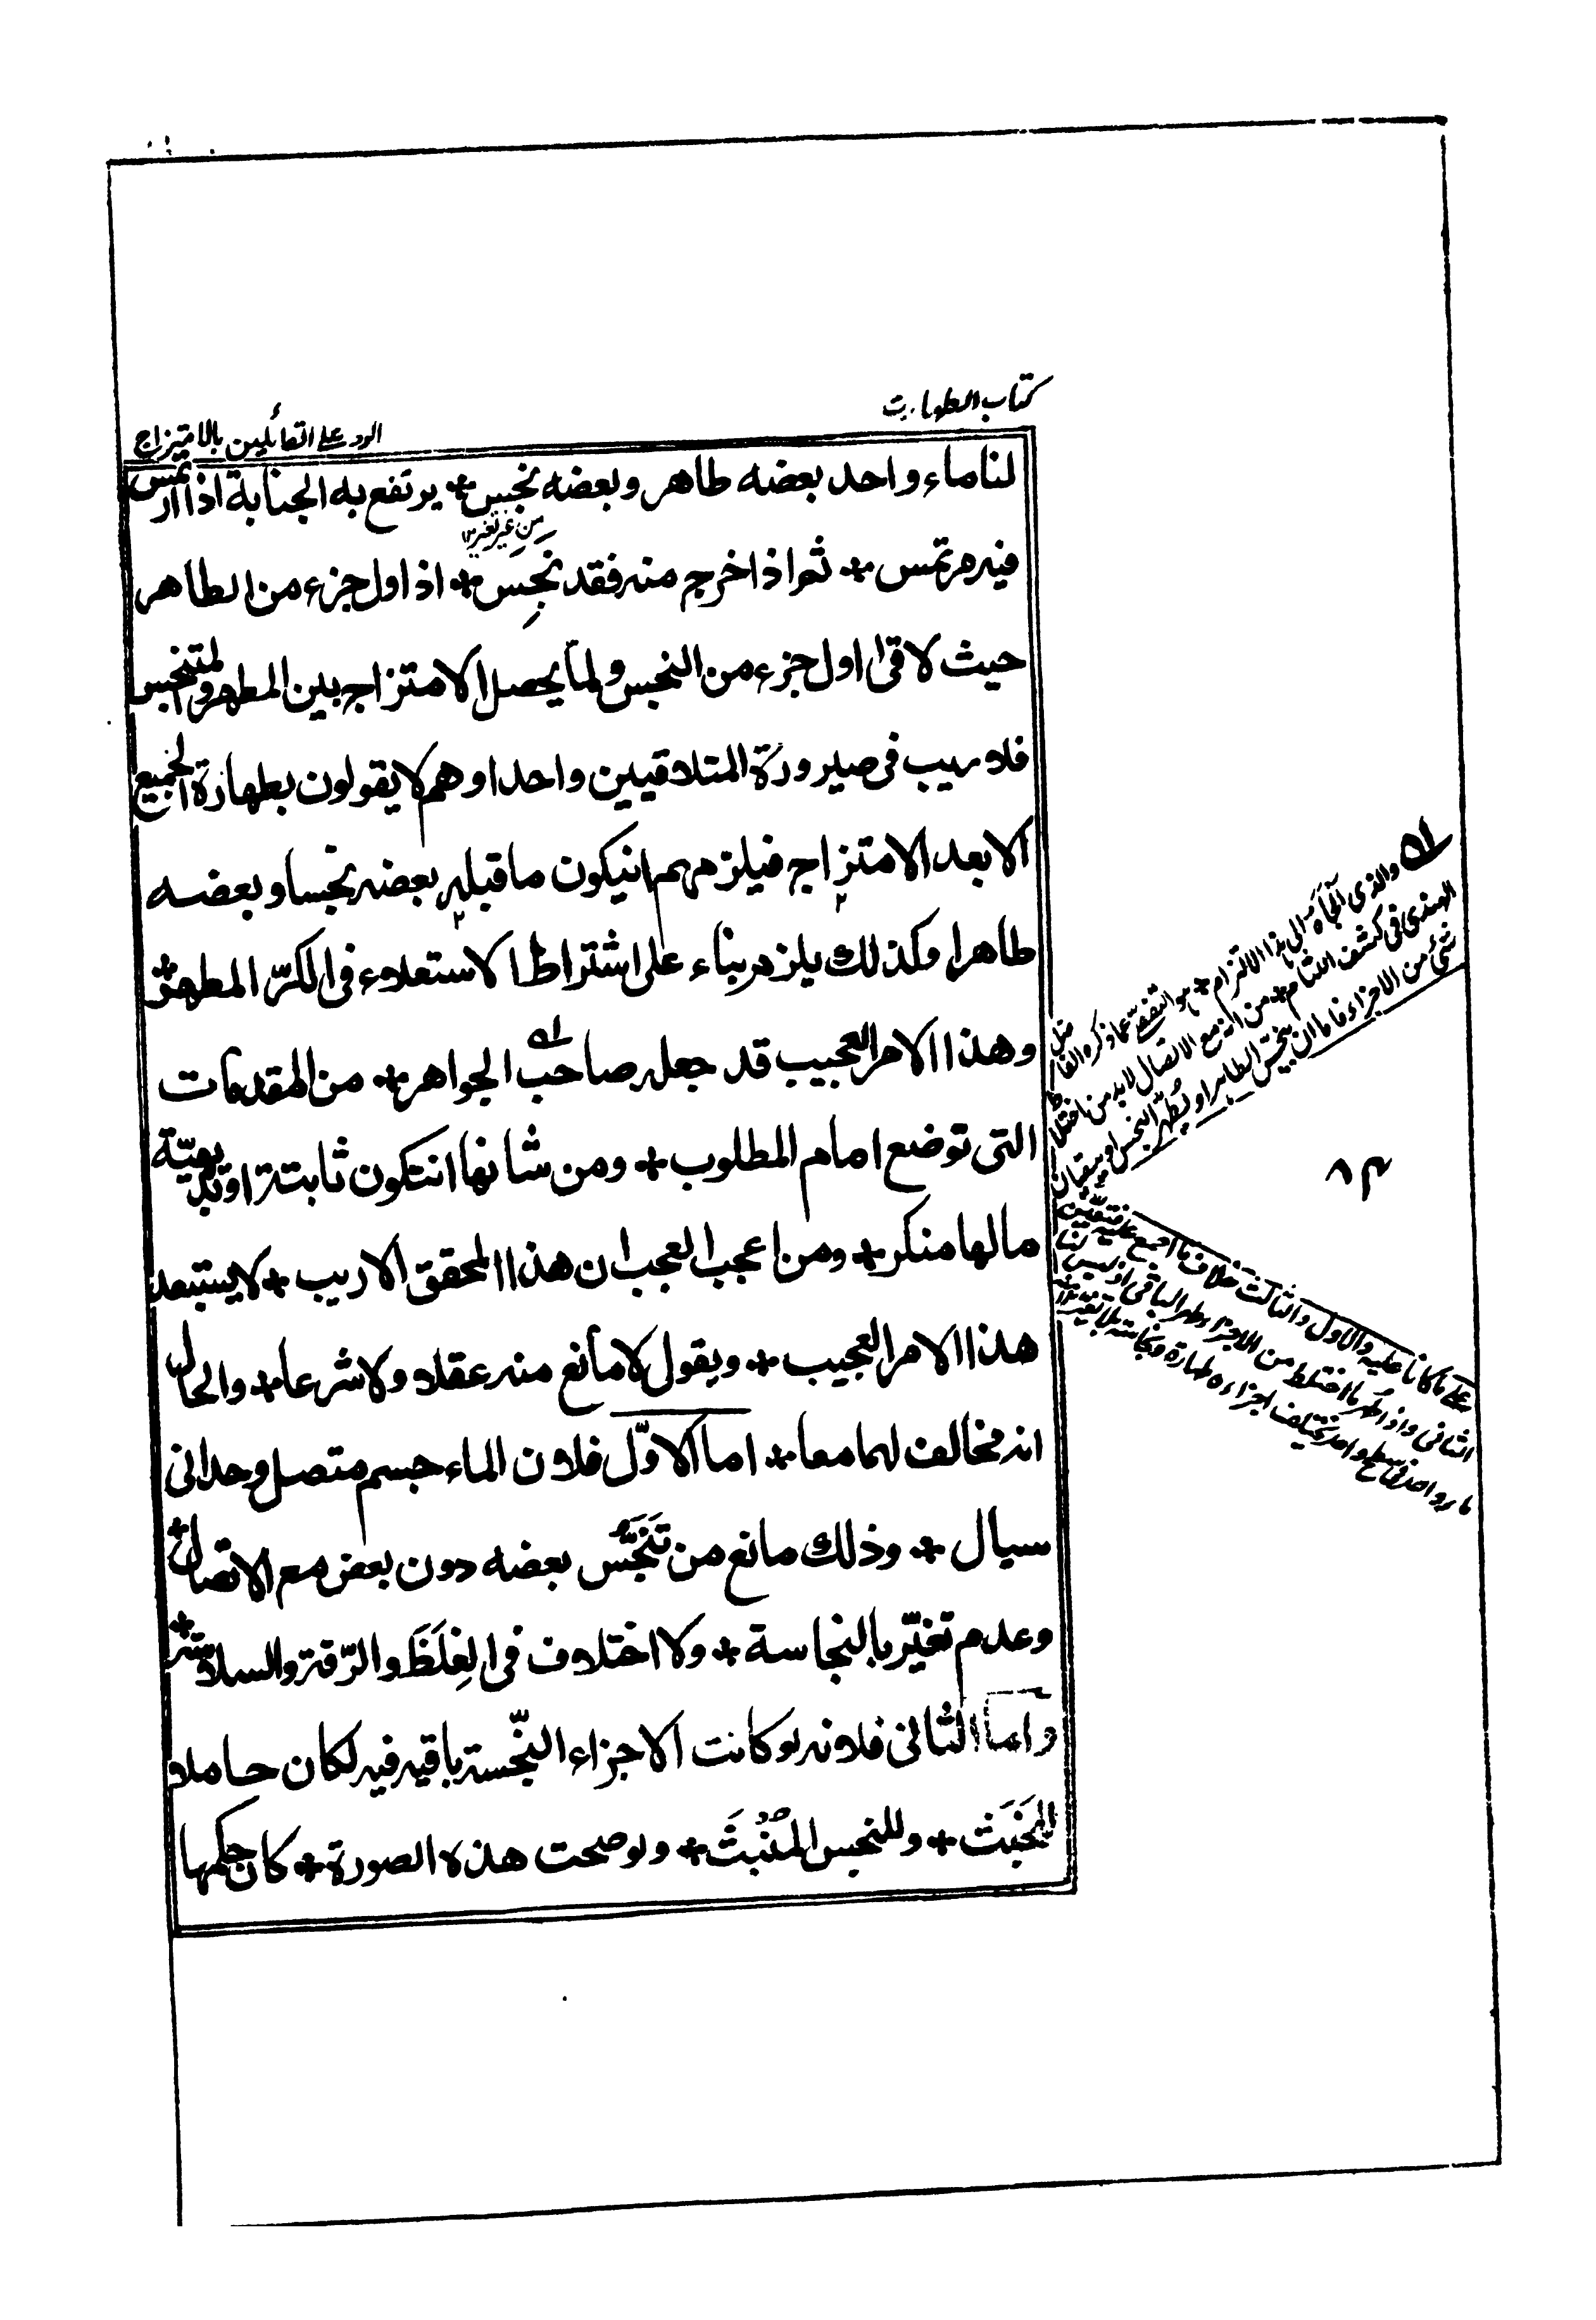 كتاب الطهارت
الرد على القائلين بالامتزاج
لنا ماء واحد بعضه طاهر وبعضه نجس * يرتفع به الجنابة اذا ارتمس
فيه مرتمس * ثم اذا خرج منه فقد نجس * اذ اول جزء من الطاهر
من غير تغير ١٢
حيث لاقى اول جزء من النجس ولما يحصل الامتزاج بين المطهر والمتنجس
فلا ريب فى صيرورة المتلاقيين واحدا وهم لا يقولون بطهارة الجميع
الا بعد الامتزاج فيلزمهم انيكون ما قبله بعضه نجسا وبعضه
طاهرا وكذلك يلزم بناء على اشتراط الاستعلاء فى الكرّ المطهر *
وهذا الامر العجيب قد جعله صاحب الجواهر * من المقدمات
التى توضع امام المطلوب * ومن شانها انتكون ثابتة او بديهيّة
مالها منكر * ومن اعجب العجب ان هذا المحقق الاريب * لا يستبعد
هذا الامر العجيب * ويقول لا مانع منه عقلا ولا شرعا * والحال
انه مخالف لهما معا * اما الاوّل فلان الماء جسم متصل وحدانى
سيال * وذلك مانع من تَنَجُّس بعضه دون بعض مع الاتصال *
وعدم تغيّره بالنجاسة * ولا اختلاف فى الغِلَظ والرّقة والسلاسة *
واما الثانى فلانه لو كانت الاجزاء النّجسة باقيه فيه لكان حاملا
للخَبَث * وللنجس المُنْبَثّ * ولو صحت هذه الصورة * كان حكمها
والذى الجأه الى هذا الالتزام * هو التفصّى عما ذكره الفاضل
الهندى فى كشف اللثام * من انه مع الاتصال لا بد من اختلاط
شئ من الاجزاء فاما ان ينجّس الطاهر او يُطهّر النجس او يبقيان
على ما كانا عليه والاول والثالث خلاف ما اجمع عليه فتعيّن
الثانى واذا طهر ما اختلط من الاجزاء طهر الباقى اذ ليس لنا
ماء واحد فى سطح واحد يختلف اجزاءه طهارة ونجاسة بلا تغير